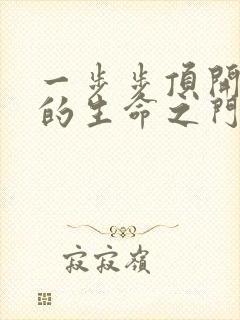 一步步頂開
的生命之門
寂寂嶺